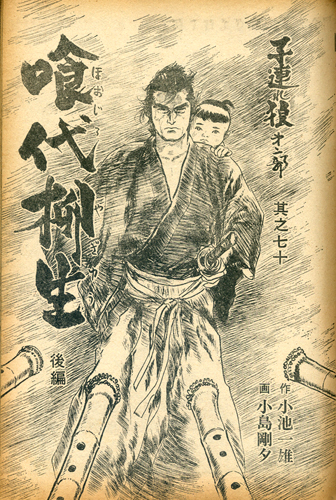 子連れ狼
其之七十
喰代柳生
ほおじろやぎゅう
後編
作 小池一雄
画 小島剛夕